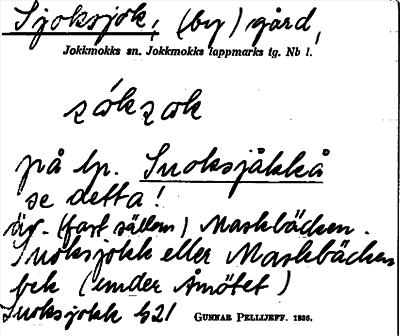 Sjoksjok, (by) gård,
Jokkmokks sn. Jokkmokks lappmarks tg. Nb l.
sóksok
på lp. Suoksjåkkå
se detta!
äv. (fast sällan) Maskbäcken.
Suoksjokk eller Maskbäcken
bek (under Åmötet)
Suoksjokk 621
GUNNAR PELLIJEFF. 1936.